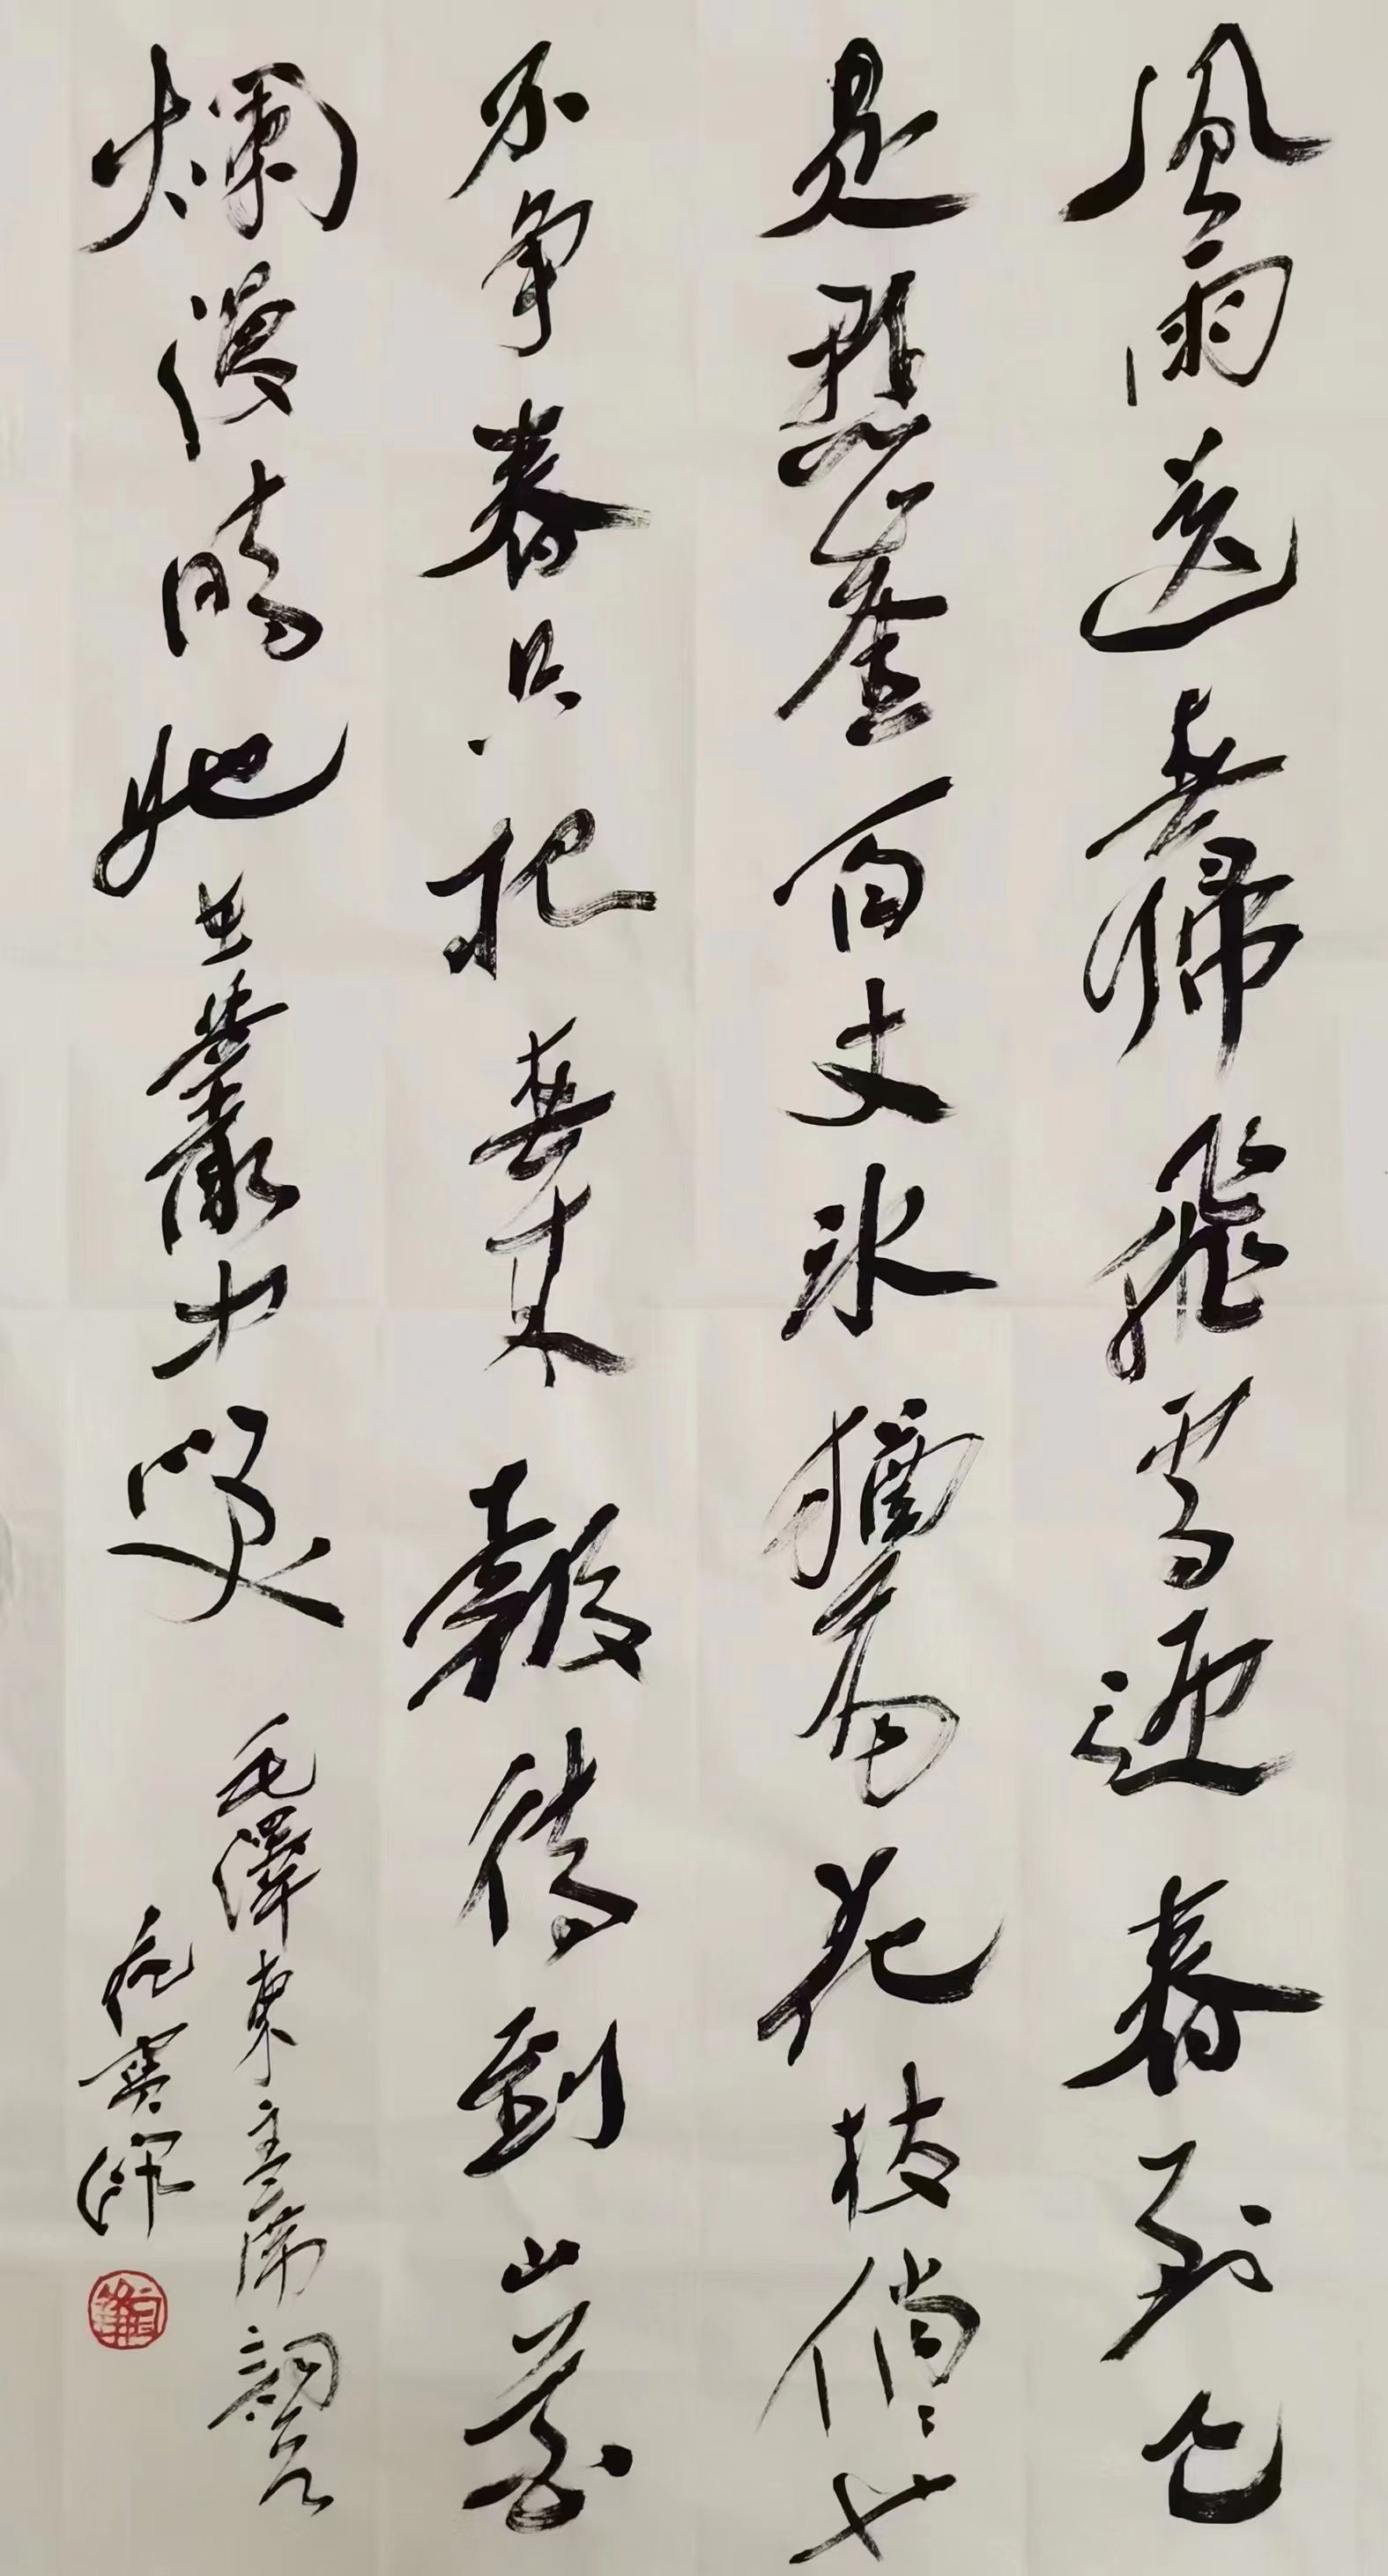 風雨送春歸飛雪迎春到已
是懸崖百丈冰猶有花枝俏〻也
不争春只把春来報待到山花
爛漫時她在叢中笑
毛澤東主席詞